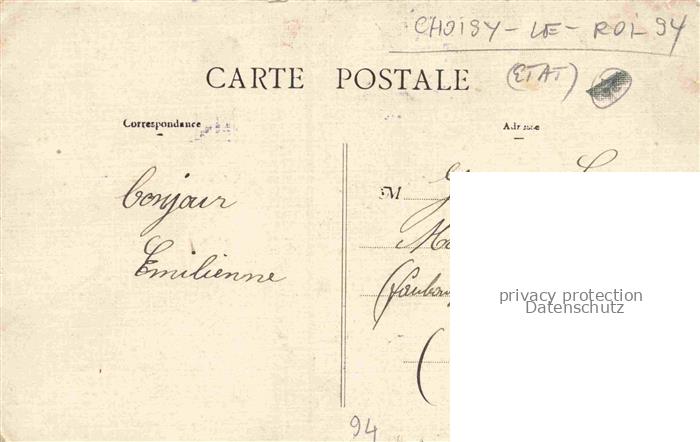 CHOISY-LE-ROI 94
(ETAT)
CARTE POSTALE
Correspondance
Adresse
bonjour
Emilienne
M
(faubourg
(
94
privacy protection
Datenschutz